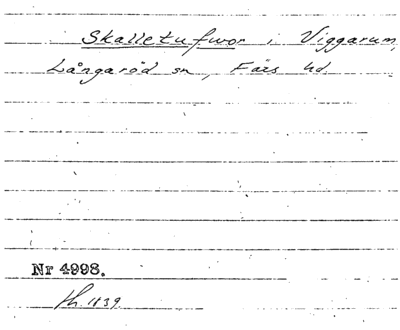 Skalletufwor i Viggarum,
Långaröd sn, Färs hd
Nr 4998.
fh. 1839